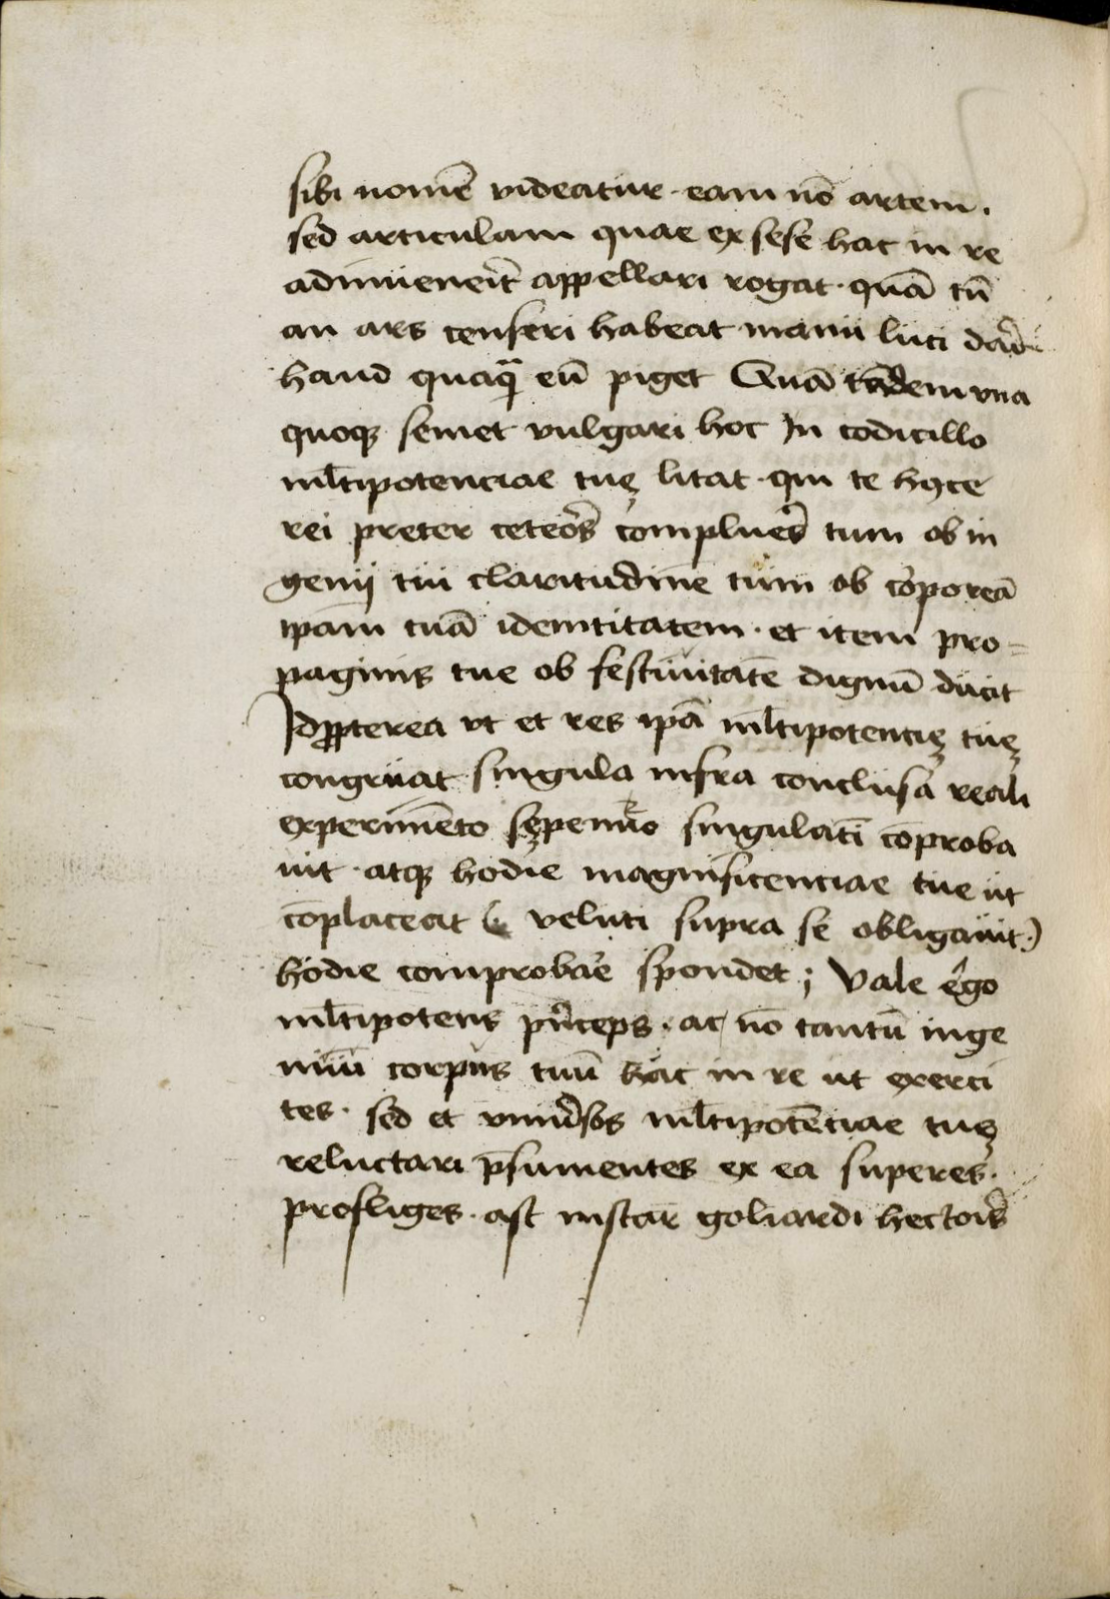 sibi nomē videatur · eam nō artem.
sed articulam quae ex sese hac in re
adinueneit̄ appellari rogat · quā tn̄
an ars censeri habeat manu luci
haud quaqꝫ eū piget Quā tādem vna
quoqꝫ semet vulgari hoc In codicillo
ml̄tipotenciae tuę litat · qui te
rei preter tum ob in
genij tui claritudinē tum ob corporeā
ipam̄ tuā idemtitatem · et item pro=
paginis tue ob festiuitatē dignū ducit
Idꝓpterea vt et res ipā ml̄tipotentię tuę
congruat · singula infra conclusa reali
experimēto sępenuo singulati᷄ cōproba
uit · atqꝫ hodie magnificenciae tue ut
cōplaceat ( veluti supra se obligauit · )
hodie comprobare spondet ; Vale ergo
ml̄tipotens pn̄ceps · ac nō tantū inge
niū corpus tuū hac in re ut exerci
tes · sed et vniu̓sos ml̄tipotēciae tuę
reluctari p̄sumentes ex ea superes ·
profliges · ast instar goliardi hectoris